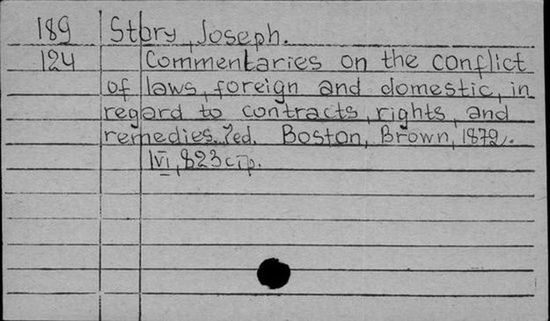 189 Story, Joseph.
124 Commentaries on the conflict
of laws, foreign and domestic, in
regard to contracts, rights, and
remedies. 7ed. Boston, Brown, 1872.
lvi, 823 стр.